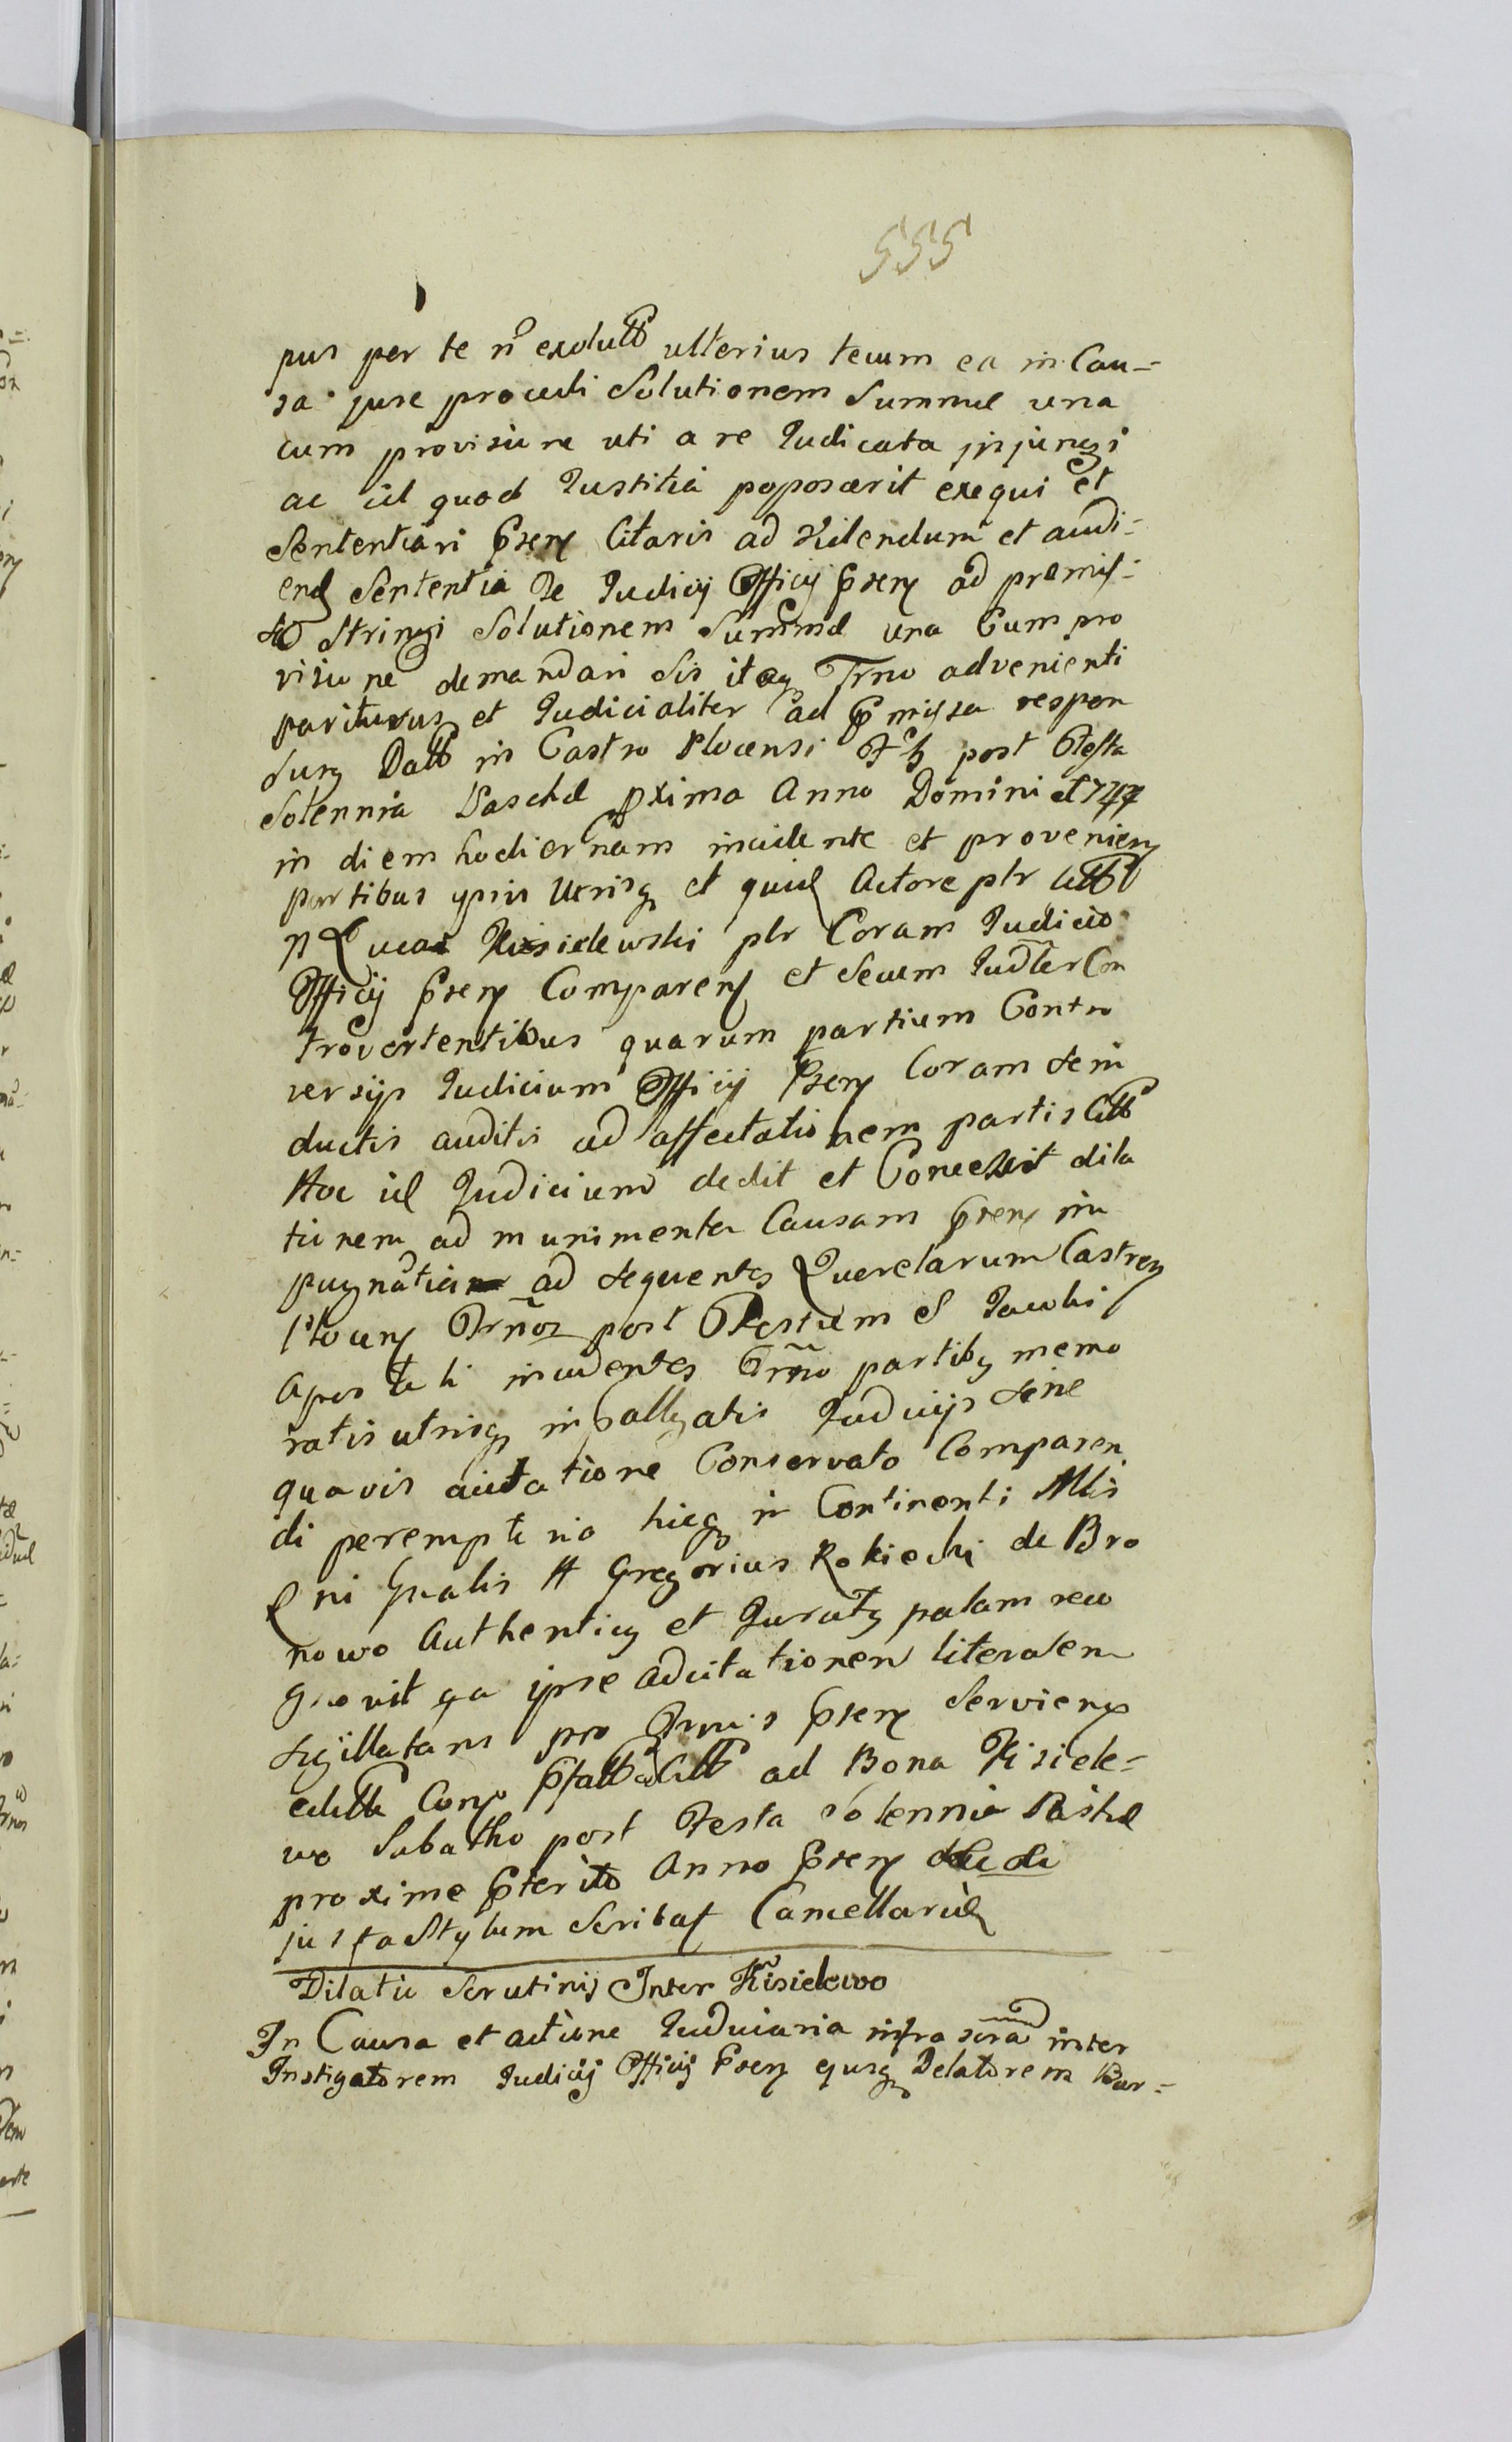 555
pus per te ñ exolutt ulterius tecum ea in Cau=
sa jure procedi Solutionem Summæ una
cum provisione uti a re Judicata injungi
ac id quod Justitia poposcerit exequi et
Sententiari Psens Citaris ad Videndum et audi=
end Sententia Te Judicij Officij Psens ad præmis=
sa Stringi Solutionem Summæ una Cum pro
visione demandari Sis itaq Trno advenienti
pariturus et Judicialiter ad Pmissa respon
surus Datt in Castro Plocensi post Festa
Solennia Paschæ pxima Anno Domini 1747
in diem hodiernam incidente et proveniens
partibus ipsis Utrisq et quid Actore ptr Citt
N Lucas Kisielewski ptr Coram Judicio
Officij Psens Comparens et Secum Judlter Con
trovertentibus quarum partium Contro
versijs Judicium Officij Psens Coram se in
ductis auditis ad affectationem partis Citt
Hoc id Judicium dedit et Concessit dila
tionem ad munimenta Causam Psens im
pugnatia ad sequentes Querelarum Castrens
Plocens Trños post Festum S Jacobi
Apostoli incidentes Trño partibus memo
ratis utrisq in Judicijs sine
quavis citatione Conservato Comparen
di peremptorio hicq in Continenti Mtis
R ni Gnalis H Gregorius Rokicki de Bro
nowo Authenticus et Juratus palam reco
gnovit qa ipse Adcitationem literalem
sigillatam pro Trmis Psens Serviens
editt Conp Pfatt Citt ad Bona Kisiele=
wo Sabatho post Festa Solennia Paschæ
proxime Pterito Anno Psens
juxta Stylum Scribas Cancellariæ
Dilatio Scrutinij Inter Kisielewo
In Causa et actione Judiciaria infra scra inter
Instigatorem Judicij Officij Psens ejusq Delatorem Bar=